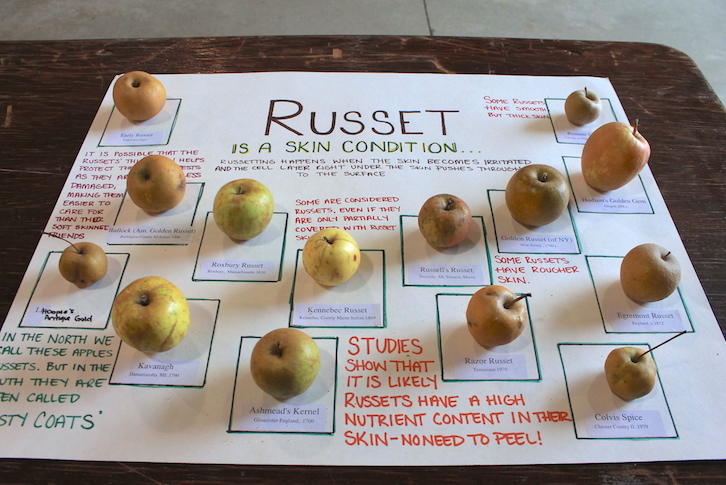 RUSSET
IS A SKIN CONDITION...
RUSSETTING HAPPENS WHEN THE SKIN BECOMES IRRITATED
AND THE CELL LAYER RIGHT UNDER THE SKIN PUSHES THROUGH
TO THE SURFACE
SOME RUSSETS
HAVE SMOOTH
BUT THICK SKIN
Early Russet
IT IS POSSIBLE THAT THE
RUSSETS' HELPS
PROTECT
AS THEY
DAMAGED,
MAKING THEM
EASIER TO
CARE FOR
THAN THEIR
SOFT SKINNED
FRIENDS
Bullock (Am. Golden Russet)
Roxbury Russet
Roxbury, Massachusetts
SOME ARE CONSIDERED
RUSSETS, EVEN IF THEY
ARE ONLY PARTIALLY
COVERED WITH RUSSET
Kennebec Russet
Kennebec County Maine before
Russell's Russet
Golden Russet (of NY)
Hudson's Golden Gem
SOME RUSSETS
HAVE ROUGHER
SKIN.
Egremont Russet
England,
Hoople's
Antique Gold
Kavanagh
Damariscotta, ME 1790
Ashmead's Kernel
Gloucester England, 1700
Razor Russet
Tennessee 1970
Colvis Spice
IN THE NORTH WE
CALL THESE APPLES
RUSSETS. BUT IN THE
SOUTH THEY ARE
OFTEN CALLED
COATS"
STUDIES
SHOW THAT
IT IS LIKELY
RUSSETS HAVE A HIGH
NUTRIENT CONTENT IN THEIR
SKIN-NO NEED TO PEEL!